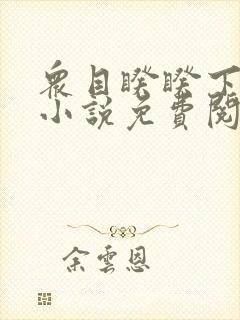 衆目睽睽下
小說免費閱
余雲恩